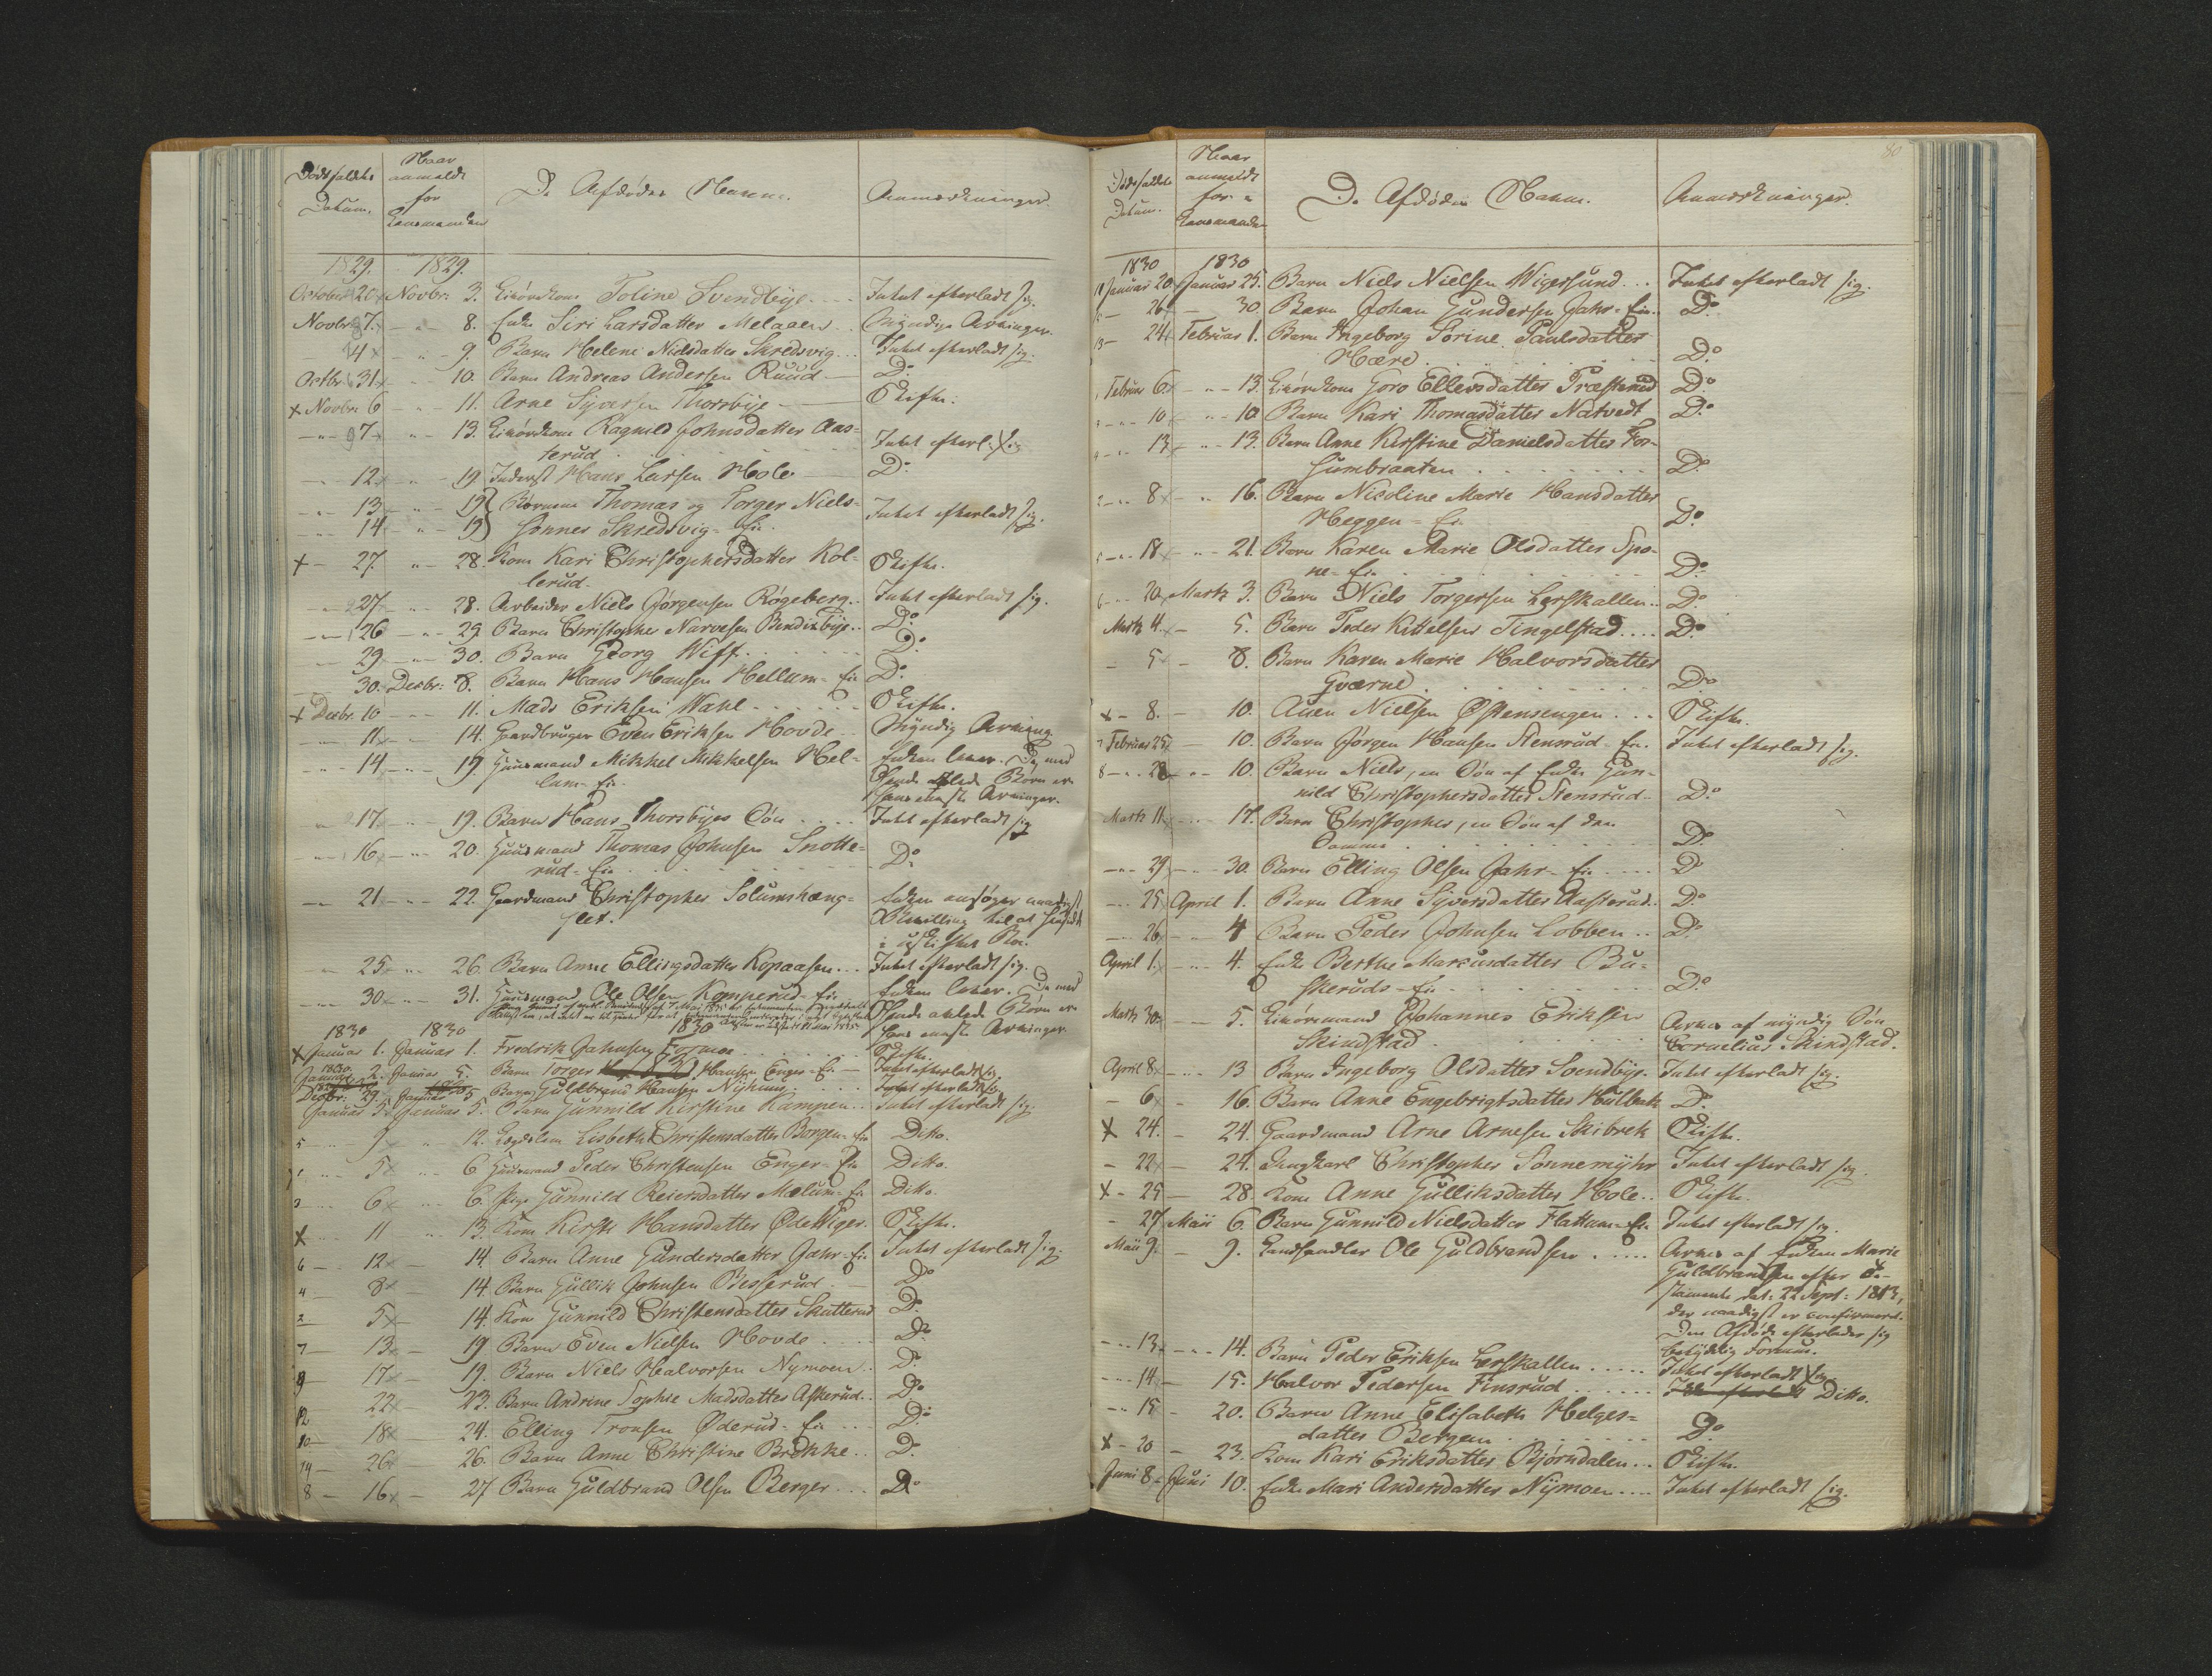 Dødsfaldets Datum.
Naar anmeldt for Lensmanden
De Afdødes Navne.
Anmærkninger.
1829. 1829.
October 20 Novbr: 3. Livørekone Toline Svendbye Intet efterladt sig.
Novbr: 7. 8. Enke Siri Larsdatter Melaaen Myndige Arvinger.
4 9. Barn Helene Nielsdatter Skredsvig Intet efterladt sig.
Octbr 31 10. Barn Andreas Andersen Ruud Do
x Novbr: 6 11. Arne Syversen Thorsbye Skifte.
7 13. Livørekone Ragnild Johnsdatter Aas-
terud Intet efterl: sig
12 19 Inderst Hans Larsen Hole Do
13 19 Børnene Thomas og Torger Niels-
14 19 sønner Skredsvig-Eie Intet efterladt sig.
x 27 28. Kone Kari Christophersdatter Kol-
lerud. Skifte.
27 28. Arbeider Niels Jørgensen Røgeberg Intet efterladt sig.
26 29 Barn Christopher Narvesen Bendixbye Do
29 30. Barn Georg Wiff Do
30. Decbr: 8. Barn Hans Hansen Hellum-Eie Do
x Decbr. 10 11. Mads Eriksen Wahl Skifte.
11 14. Gaardbruger Even Eriksen Hovde Myndig Arving.
14 19. Huusmand Mikkel Mikkelsen Hel-
lum-Eie Enken lever. De med
hende avlede Børn ere
hans eneste Arvinger.
17 19. Barn Hans Thorsbyes Søn Intet efterladt sig
16 20. Huusmand Thomas Johnsen Snotte-
rud-Eie Do
21 22. Gaardmand Christopher Solumshæng-
slet. Enken ansøger naadigst
Bevilling til at hensidde
i uskiftet Boe.
25 26. Barn Anne Ellingsdatter Kopaasen Intet efterladt sig.
30 31. Huusmand Ole Olsen Komperud-Eie Enken lever. De med
hende avlede Børn ere
hans eneste Arvinger.
1830 1830 1830
x Januar 1. Januar 1. Fredrik Jahnsen Formoe Skifte.
1830. Januar 2. Januar 5. Barn Torger Hansen Enger-Eie Intet efterladt sig.
Decbr: 29. Januar 5 Barn Guldbrand Hansen Nyhuus Intet efterladt sig
Januar 5. Januar 5. Barn Gunnild Kirstine Kampen Intet efterladt sig.
5 9 12. Lægdslem Lisbeth Christensdatter Borgen-Eie Ditto.
5 6 Huusmand Peder Christensen Enger-Eie Ditto.
3 6 6. Pige Gunnild Reiersdatter Mælum-Eie Ditto
x 11 13. Kone Kirsti Hansdatter Øde Wiger Skifte.
6 12 14. Barn Anne Gundersdatter Jahr-Eie Intet efterladt sig.
4 8 14. Barn Gullik Johnsen Besserud Do
2 5 14. Kone Gunnild Christensdatter Skutterud Do
7 13 19 Barn Even Nielsen Hovde Do
9 17 19. Barn Niels Halvorsen Nymoen Do
22 23. Barn Andrine Sophie Madsdatter Askerud Do
10 18 24. Elling Tronsen Øderud-Eie Do
14 26 26. Barn Anne Christine Brekke Do
8 16 27 Barn Guldbrand Olsen Berger Do
80
Dødsfaldets Datum.
Naar anmeldt for Lensmanden
De Afdødes Navne.
Anmærkninger.
1830 1830
11 Januar 20. Januar 25. Barn Niels Nielsen Wigersund Intet efterladt sig.
26 30. Barn Johan Gundersen Jahr-Eie Do
13 24 Februar 1. Barn Ingeborg Sorine Paulsdatter
Hære Do
Februar 6 13. Livørekone Goro Ellevsdatter Præsterud Do
10 10 Barn Kari Thomasdatter Natvedt Do
13 13. Barn Anne Kirstine Danielsdatter For-
humbraaten Do
8 16. Barn Nicoline Marie Hansdatter
Heggen-Eie Do
18 21. Barn Karen Marie Olsdatter Spo-
ne-Eie Do
20 Martz 3. Barn Niels Torgersen Lerskallen Do
Martz 4. 5. Barn Peder Kittelsen Tingelstad Do
5 8. Barn Karen Marie Halvorsdatter
Gværne Do
x 8. 10. Auen Nielsen Østensengen Skifte.
7 Februar 25 10. Barn Jørgen Hansen Stensrud-Eie. Intet efterladt sig.
8 28 10. Barn Niels, en Søn af Enke Gun-
nild Christophersdatter Stensrud Do
Martz 11 17. Barn Christopher, en Søn af den
Samme Do
29 30. Barn Elling Olsen Jahr-Eie Do
25 April 1. Barn Anne Syversdatter Aasterud Do
26 4 Barn Peder Johnsen Lobben Do
April 1. 4. Enke Berthe Marcusdatter Bu-
skeruds-Eie Do
Martz 30 5. Livøremand Johannes Eriksen
Skindstad Arves af myndig Søn
Cornelius Skindstad.
April 8 13 Barn Ingeborg Olsdatter Svendbye Intet efterladt sig.
6 16. Barn Anne Engebrigtsdatter Hulbak Do
x 24. 24. Gaardmand Arne Arnesen Skibrek Skifte.
22 24. Ungkarl Christopher Sønnemyhr Intet efterladt sig.
x 25 28. Kone Anne Gulliksdatter Hole Skifte.
27 Maii 6. Barn Gunnild Nielsdatter Flattum-Eie Intet efterladt sig.
Maii 9. 9. Landhandler Ole Guldbrandsen Arves af Enken Marie
Guldbrandsen efter Te-
stamente dat: 22 Sept: 1813,
der naadigst er confirmeret.
Den Afdøde efterlader sig
betydelig Formue.
13 14. Barn Peder Eriksen Lerskallen Intet efterladt sig.
14 15. Halvor Pedersen Finsrud Ditto.
15 20. Barn Anne Elisabeth Helges-
datter Bergan Do
x 20 23. Kone Kari Eriksdatter Bjørndalen Skifte.
Juni 8 Juni 10. Enke Mari Andersdatter Nymoen Intet efterladt sig.